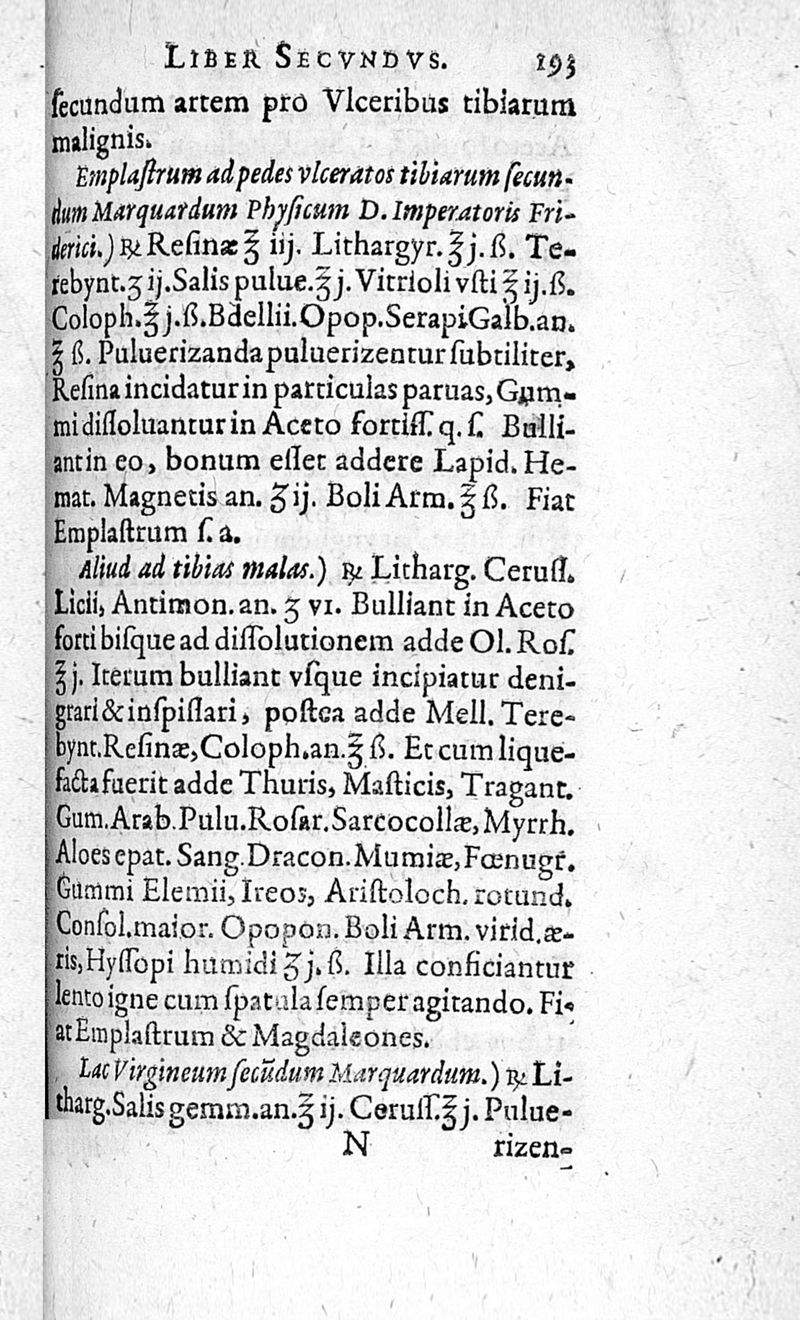 LIBER SECVNDVS. 193
ſecundum artem pro Vlceribus tibiarum
malignis.
Emplaſtrum ad pedes vlceratos tibiarum ſecun-
dum Marquardum Phyſicum D. Imperatoris Fri-
derici.) ℞ Reſinæ ℥ iij. Lithargyr. ℥ j. ß. Te-
rebynt. ʒ ij. Salis pulue. ℥ j. Vitrioli vſti ℥ ij. ß.
Coloph. ℥ j. ß. Bdellii. Opop. Serapi Galb. an.
℥ ß. Puluerizanda puluerizentur ſubtiliter,
Reſina incidatur in particulas paruas, Gum-
mi diſſoluantur in Aceto fortiſſ. q. ſ. Bulli-
ant in eo, bonum eſſet addere Lapid. He-
mat. Magnetis an. ʒ ij. Boli Arm. ℥ ß. Fiat
Emplaſtrum ſ. a.
Aliud ad tibias malas.) ℞ Litharg. Ceruſſ.
Licii, Antimon. an. ʒ vı. Bulliant in Aceto
forti biſque ad diſſolutionem adde Ol. Roſ.
℥ j. Iterum bulliant vſque incipiatur deni-
grari & inſpiſſari, poſtea adde Mell. Tere-
bynt. Reſinæ, Coloph. an. ℥ ß. Et cum lique-
facta fuerit adde Thuris, Maſticis, Tragant.
Gum. Arab. Pulu. Roſar. Sarcocollæ, Myrrh.
Aloes epat. Sang. Dracon. Mumiæ, Fœnugr.
Gummi Elemii, Ireos, Ariſtoloch. rotund.
Conſol. maior. Opopon. Boli Arm. virid. æ-
ris, Hyſſopi humidi ʒ j. ß. Illa conficiantur
lento igne cum ſpatula ſemper agitando. Fi-
at Emplaſtrum & Magdaleones.
Lac Virgineum ſecũdum Marquardum.) ℞ Li-
tharg. Salis gemm. an. ℥ ij. Ceruſſ. ℥ j. Pulue-
N rizen-